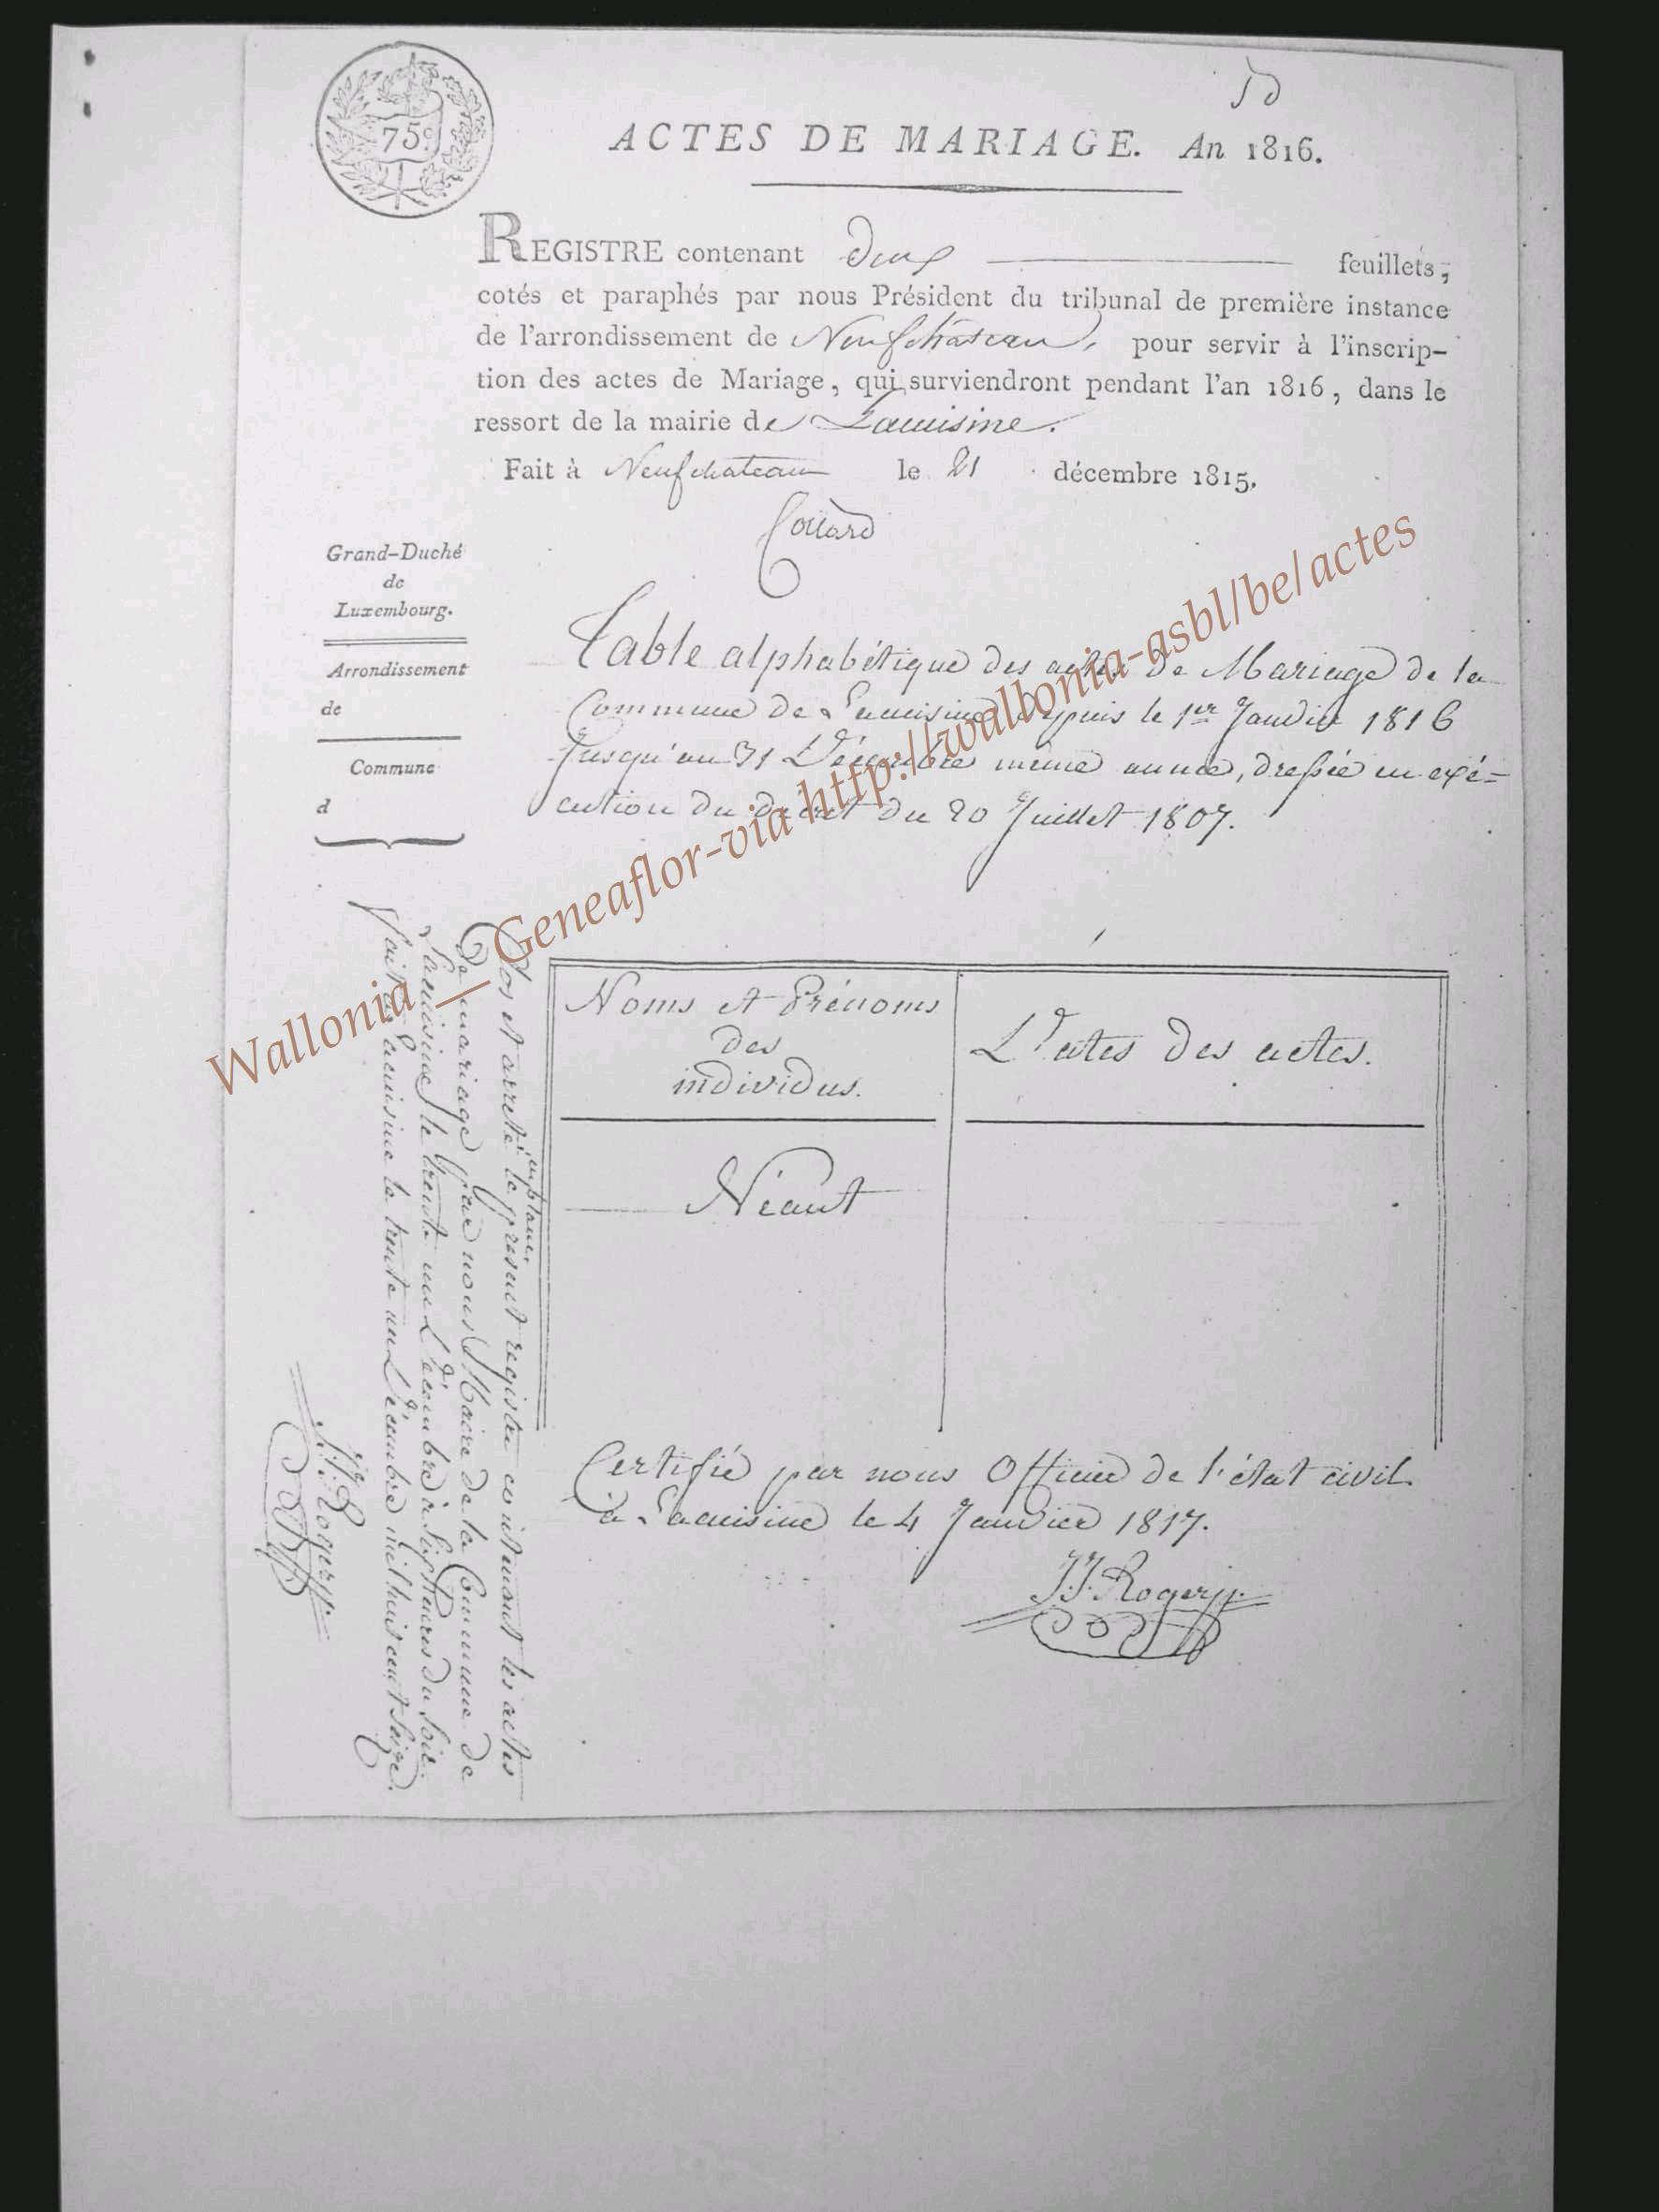 75c.
ACTES DE MARIAGE. An 1816.
REGISTRE contenant deux feuillets,
cotés et paraphés par nous Président du tribunal de première instance
de l'arrondissement de Neufchâteau, pour servir à l'inscrip-
tion des actes de Mariage, qui surviendront pendant l'an 1816, dans le
ressort de la mairie de Lacuisine.
Fait à Neufchateau le 21 décembre 1815.
Collard
Grand-Duché
de
Luxembourg.
Arrondissement
de
Commune
d
Table alphabétique des actes de Mariage de la
Commune de Lacuisine depuis le 1er Janvier 1816
jusqu'au 31 Décembre même année, dressée en exé=
cution du décret du 20 Juillet 1807.
Noms et Prénoms
des
individus.
Dates des actes.
Néant
Certifié par nous Officier de l'état civil
à Lacuisine le 4 Janvier 1817.
J.J. Roger
Clos et arreté le présent registre contenant les actes
de mariage par nous Maire de la Commune de
Lacuisine le trente un Décembre à six heures du soir.
Fait à Lacuisine le trente un Décembre mil huit cent seize.
J.J. Roger
Wallonia | Geneaflor-via http://wallonia-asbl/be/actes